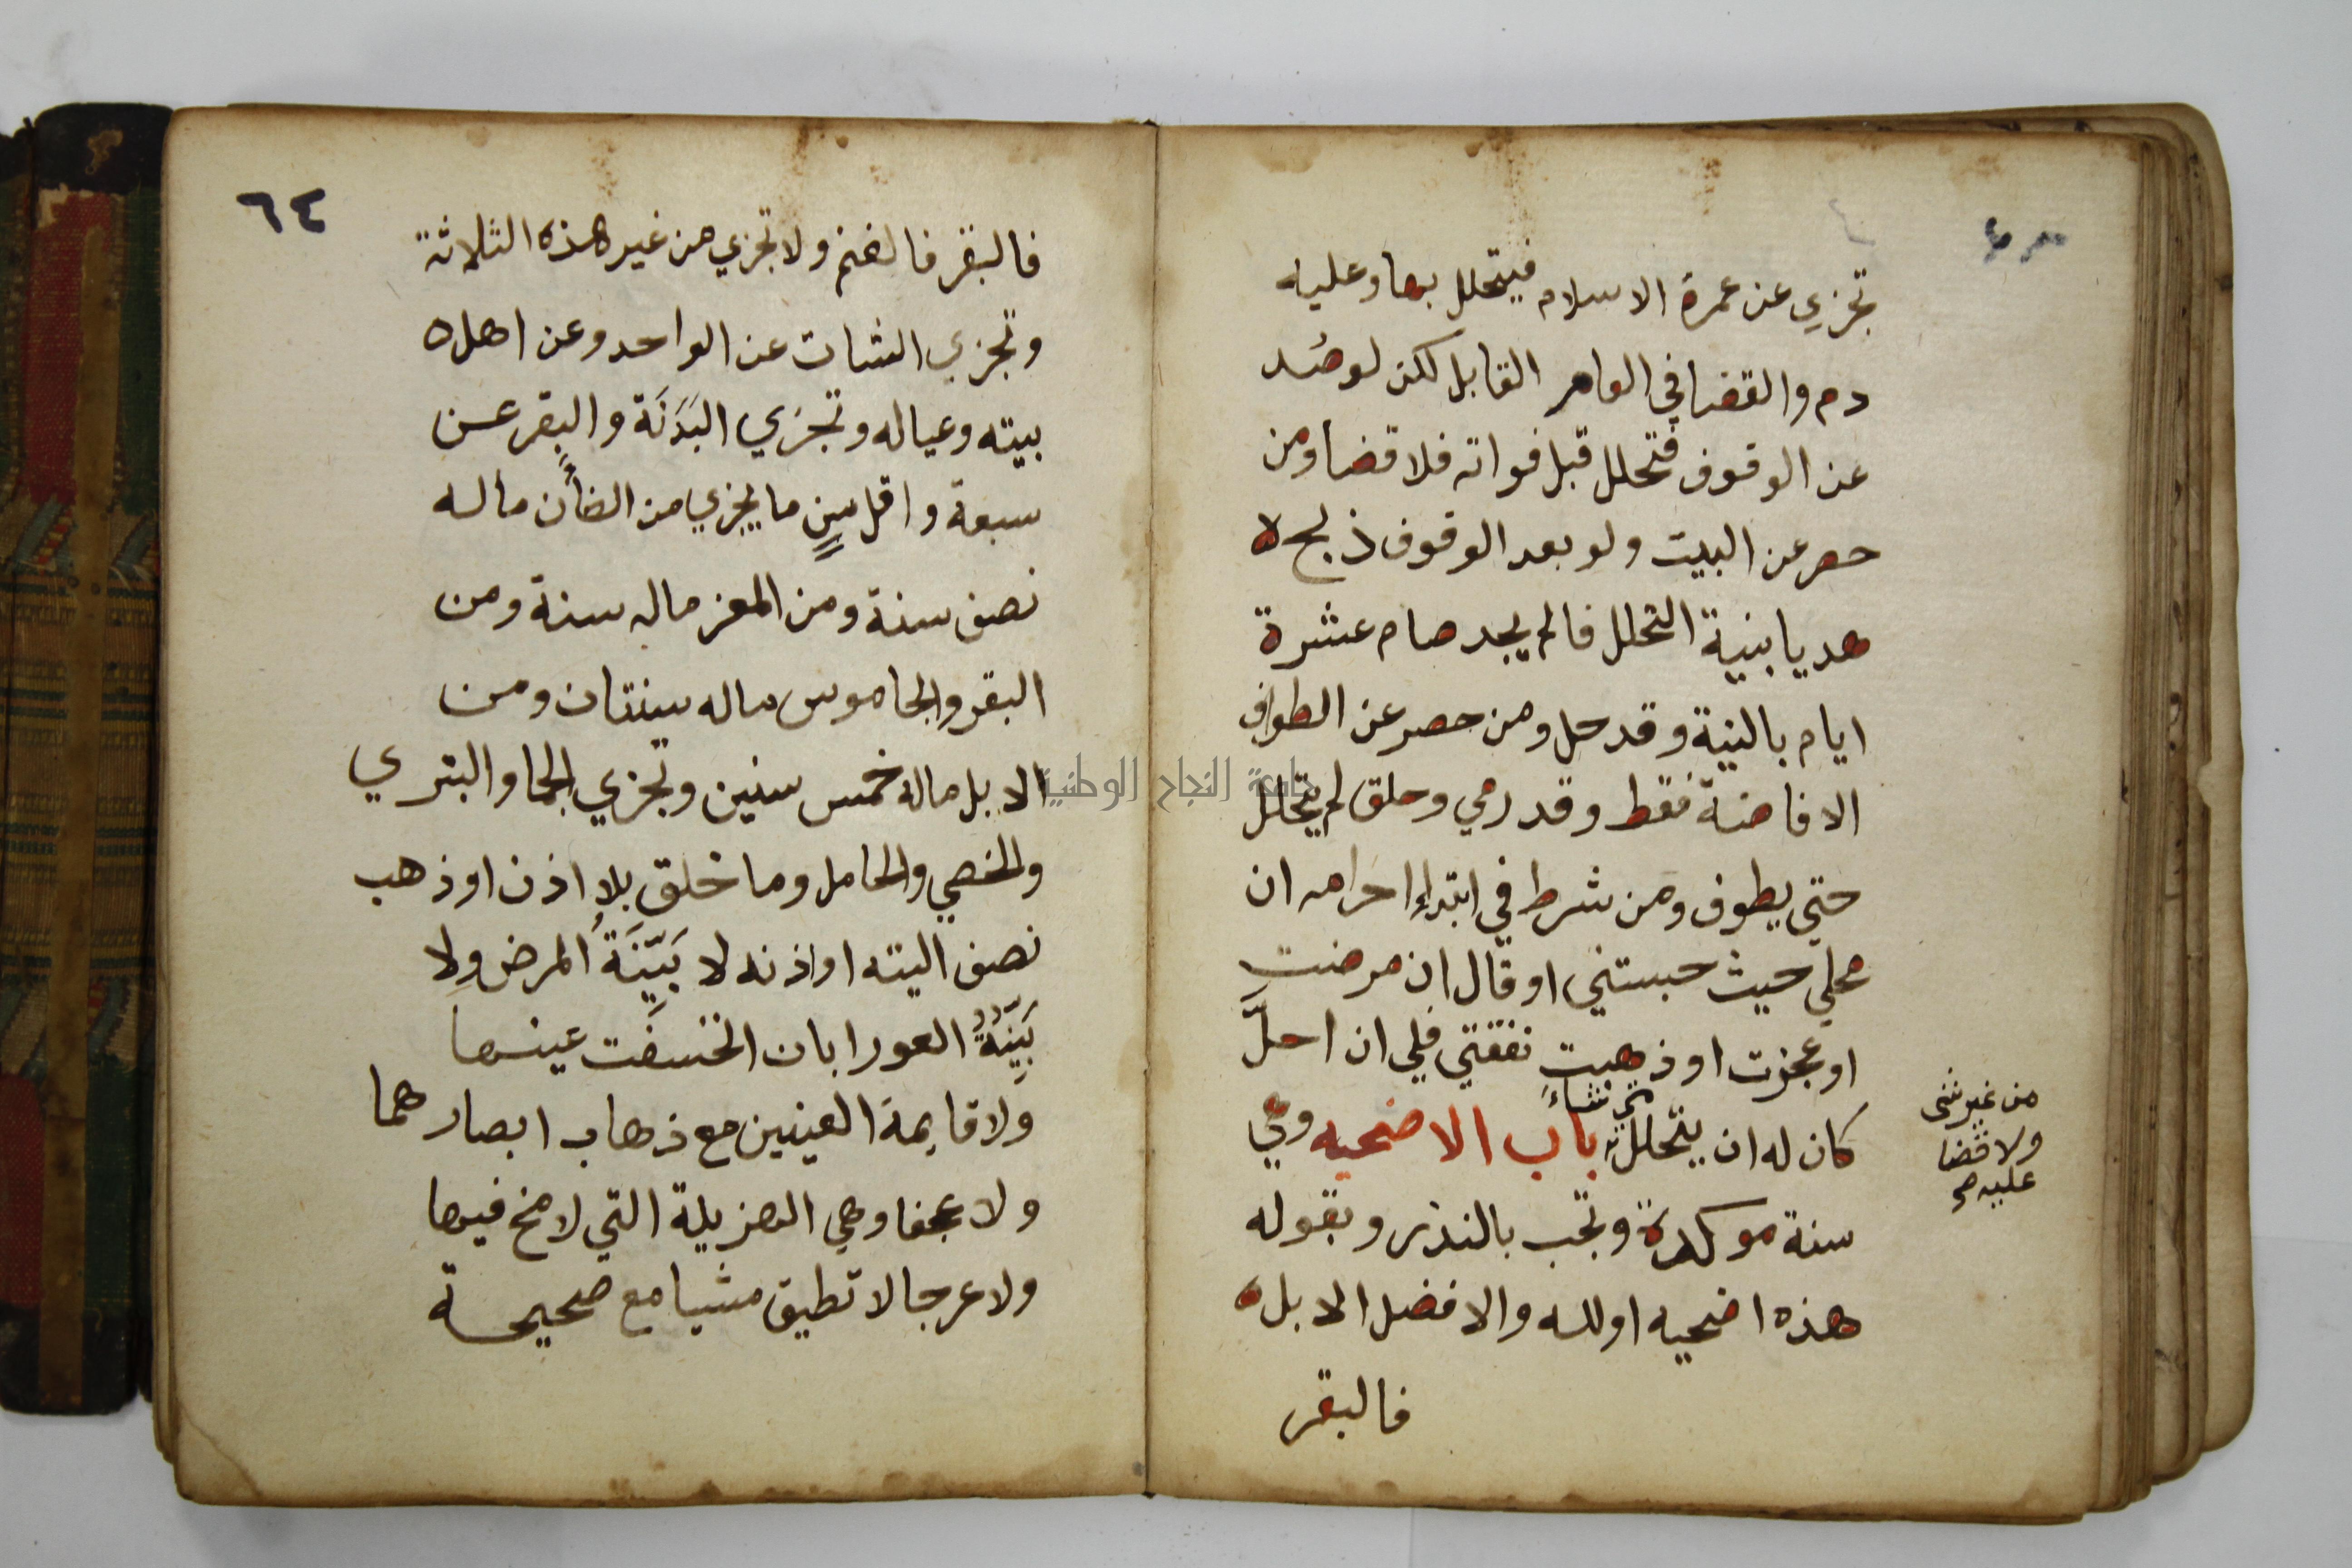 تجزي عن عمرة الاسلام فيتحلل بها وعليه
دم والقضا في العام القابل لكن لو صُد
عن الوقوف فتحلل قبل فواته فلا قضا ومن
حصر عن البيت ولو بعد الوقوف ذبح
هديا بنية التحلل فالم يجد صام عشرة
ايام بالنية وقد حل ومن حصر عن الطواف
الافاضة فقط وقد رمي وحلق لم يتحلل
حتي يطوف ومن شرط في ابتداء احرامه ان
محلي حيث حبستني او قال ان مرضت
او عجزت او ذهبت نفقتي فلي ان احلَّ
كان له ان يتحلل متي شاء باب الاضحيه وهي
من غير شى
ولا قضا
عليه صح
سنة موكدة وتجب بالنذر وبقوله
هذه اضحيه او لله والافضل الابل
فالبقر
٦٤
فالبقر فالغنم ولا تجزي من غير هذه الثلاثة
وتجزي الشات عن الواحد وعن اهل
بيته وعياله وتجزي البَدَنَة والبقر عن
سبعة واقل سنٍ ما يجزي من الضأن ماله
نصف سنة ومن المعز ماله سنة ومن
البقر والجاموس ماله سنتان ومن
الابل ماله خمس سنين وتجزي الجما والبتري
والخصي والحامل وما خلق بلا اذن او ذهب
نصف اليته او اذنه لا بَيّنَةُ المرض ولا
بَيِّنَةُ العورا بان انخسفت عينها
ولا قايمة العينين مع ذهاب ابصارهما
ولا عجفا وهي الهزيلة التي لا مخ فيها
ولا عرجا لا تطيق مشيا مع صحيحة
جامعة النجاح الوطنية